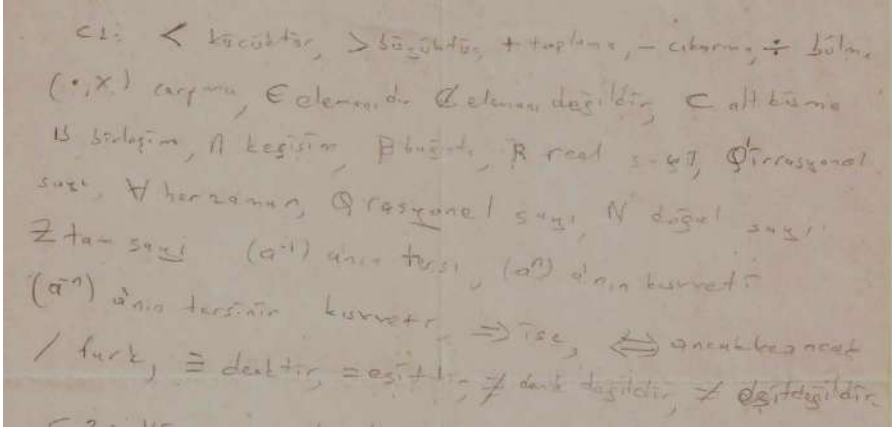 C1: < küçüktür, > büyüktür, + toplama, - çıkarma, ÷ bölme
(•, X) çarpma, ∈ elemanıdır ∉ elemanı değildir, ⊂ alt küme
U birleşim, ∩ kesişim, R real sayı, Q' irrasyonel
sayı, ∀ her zaman, Q rasyonel sayı, N doğal sayı
Z tam sayı (a⁻¹) a'nın tersi, (aⁿ) a'nın kuvveti
(a⁻ⁿ) a'nın tersinin kuvveti, ⇒ ise, ⇔ ancak ve ancak
/ fark, ≡ denktir, = eşittir, ≢ denk değildir, ≠ eşit değildir.